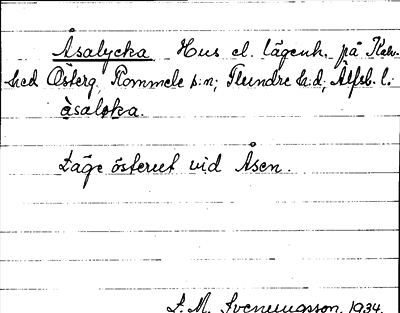 Åsalycka Hus el. lägenh. på Kab-
hed Österg. Rommele s:n; Flundre h:d, Älfsb. l.
åsaloka.
Läge österut vid Åsen.
L. M. Svenungsson. 1934.